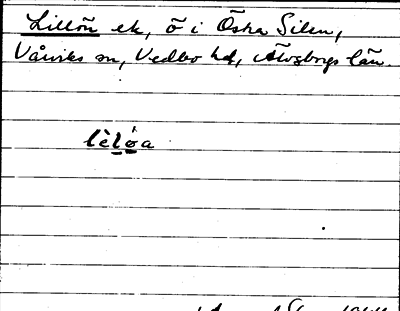 Lillön ek, ö i Östra Silen,
Vårviks sn, Vedbo hd, Älvsborgs län.
lèlǿa